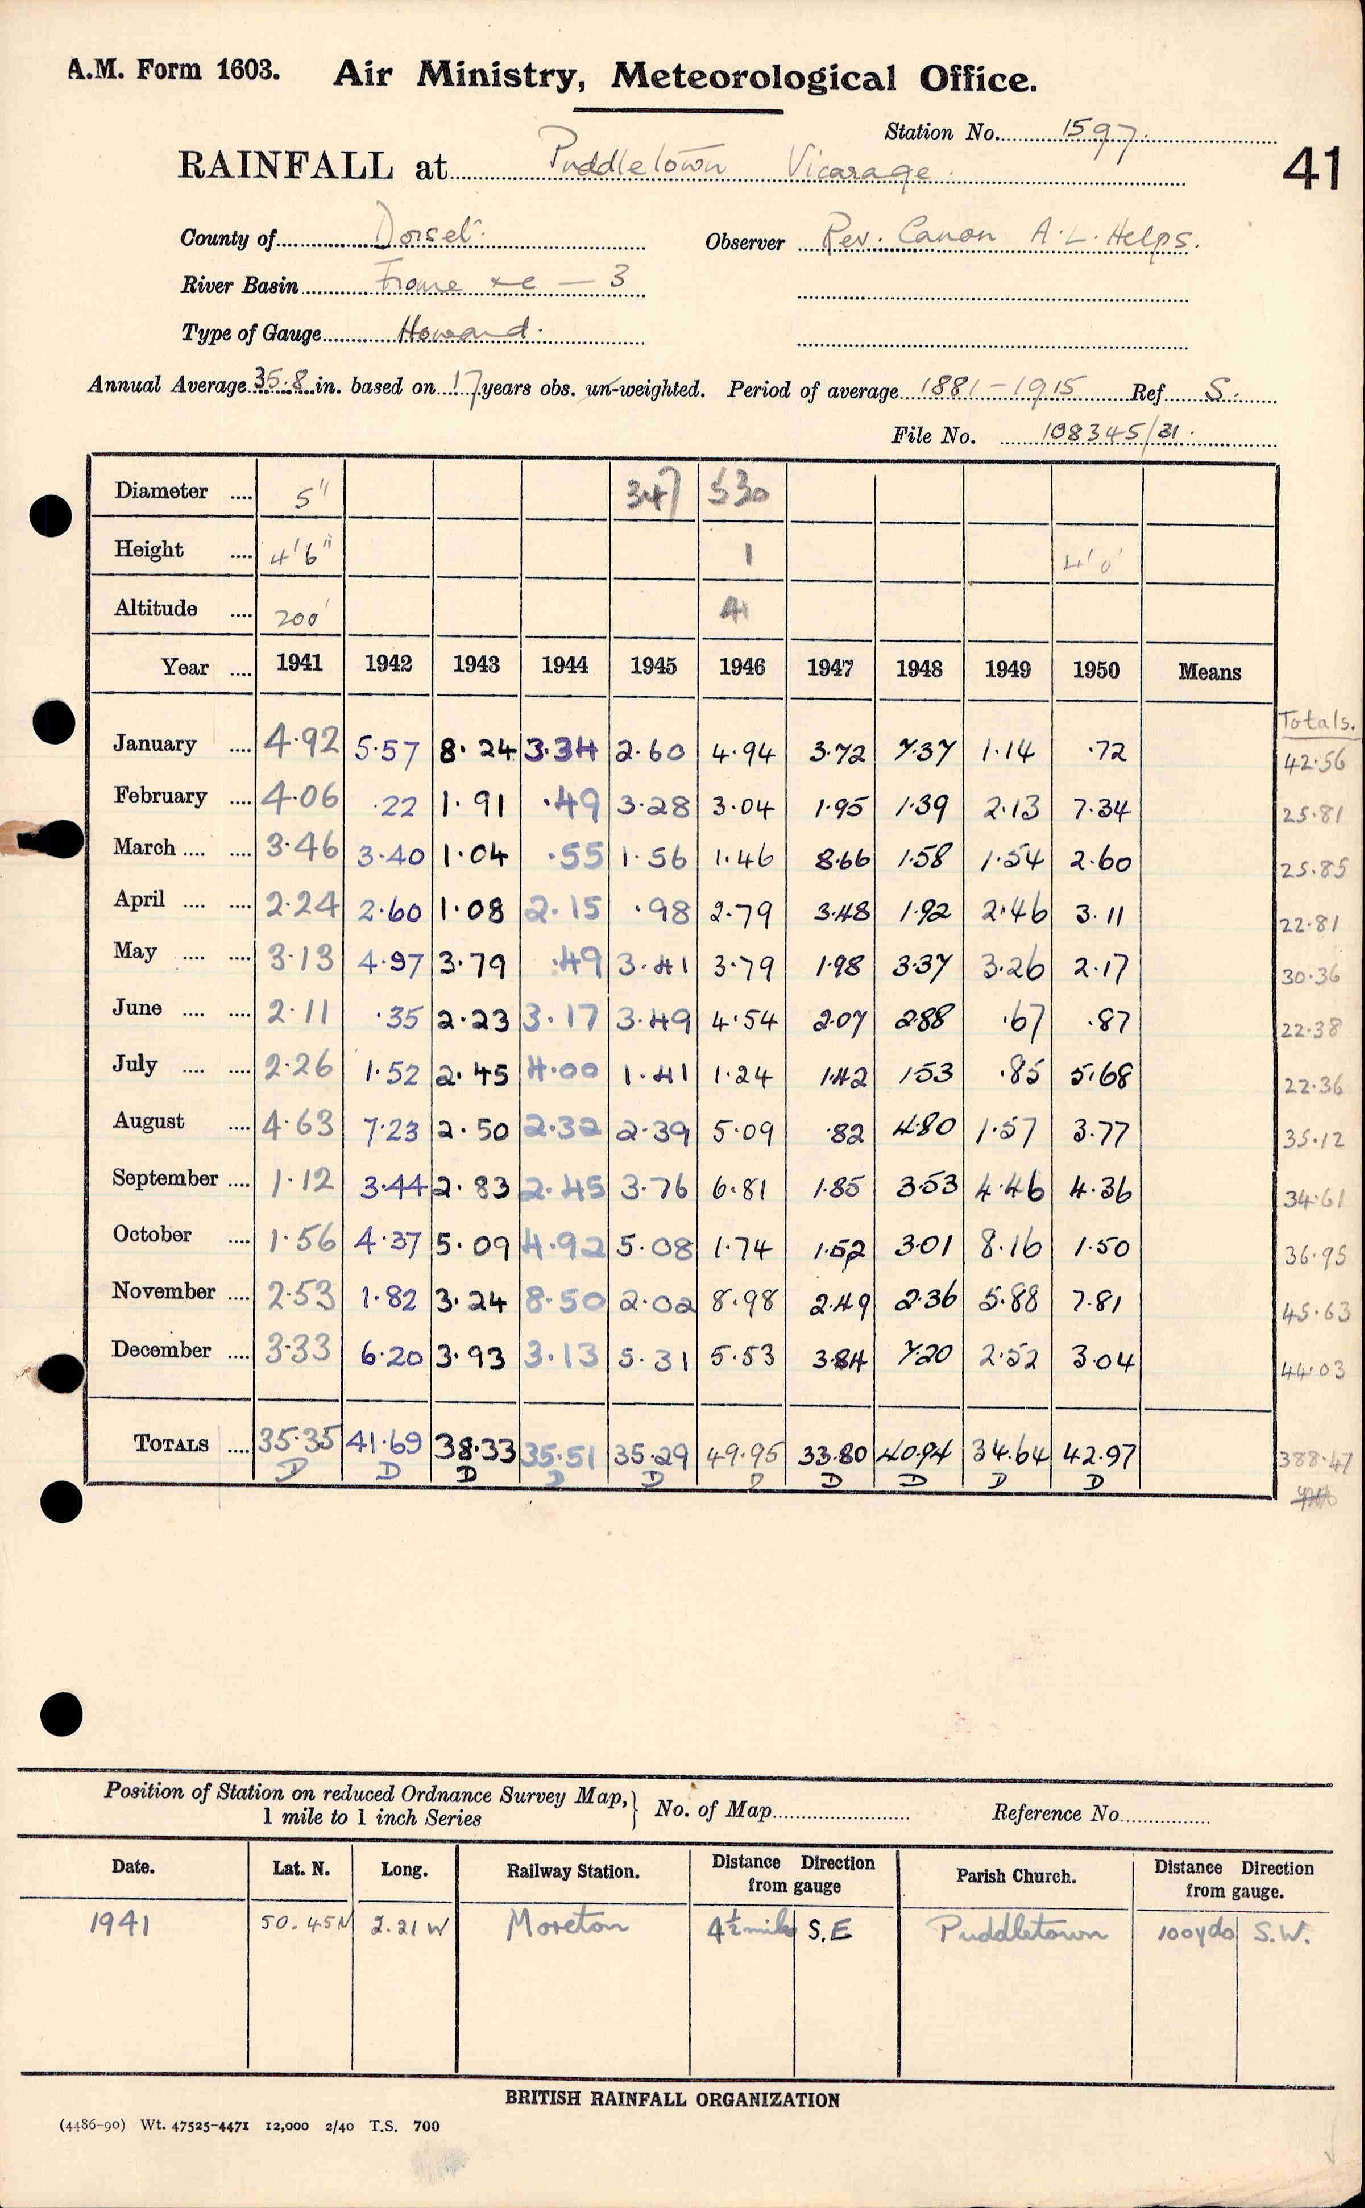 A.M. Form 1603. Air Ministry, Meteorological Office.
Station No. 1597
RAINFALL at Puddletown Vicarage 41
County of Dorset. Observer Rev. Canon A.L. Helps.
River Basin Frome &c — 3
Type of Gauge Howard.
Annual Average 35.8 in. based on 17 years obs. un-weighted. Period of average 1881-1915 Ref S.
File No. 108345/31.
Diameter .... 5" 347 530
Height .... 4'6" 1 4'0"
Altitude .... 200'
Year .... 1941 1942 1943 1944 1945 1946 1947 1948 1949 1950 Means
Totals.
January .... 4.92 5.57 8.24 3.34 2.60 4.94 3.72 7.37 1.14 .72 42.56
February .... 4.06 .22 1.91 .49 3.28 3.04 1.95 1.39 2.13 7.34 25.81
March .... .... 3.46 3.40 1.04 .55 1.56 1.46 8.66 1.58 1.54 2.60 25.85
April .... .... 2.24 2.60 1.08 2.15 .98 2.79 3.48 1.92 2.46 3.11 22.81
May .... .... 3.13 4.97 3.79 .49 3.41 3.79 1.98 3.37 3.26 2.17 30.36
June .... .... 2.11 .35 2.23 3.17 3.49 4.54 2.07 2.88 .67 .87 22.38
July .... .... 2.26 1.52 2.45 4.00 1.41 1.24 1.42 1.53 .85 5.68 22.36
August .... 4.63 7.23 2.50 2.32 2.39 5.09 .82 4.80 1.57 3.77 35.12
September .... 1.12 3.44 2.83 2.45 3.76 6.81 1.85 3.53 4.46 4.36 34.61
October .... 1.56 4.37 5.09 4.92 5.08 1.74 1.52 3.01 8.16 1.50 36.95
November .... 2.53 1.82 3.24 8.50 2.02 8.98 2.49 2.36 5.88 7.81 45.63
December .... 3.33 6.20 3.93 3.13 5.31 5.53 3.84 7.20 2.52 3.04 44.03
TOTALS .... 35.35 41.69 38.33 35.51 35.29 49.95 33.80 40.94 34.64 42.97 388.47
D D D D D D D D D D
Position of Station on reduced Ordnance Survey Map, 1 mile to 1 inch Series } No. of Map Reference No
Date. Lat. N. Long. Railway Station. Distance Direction from gauge Parish Church. Distance Direction from gauge.
1941 50.45N 2.21W Moreton 4½ miles S.E Puddletown 100yds S.W.
BRITISH RAINFALL ORGANIZATION
(4486-90) Wt. 47525-4471 12,000 2/40 T.S. 700